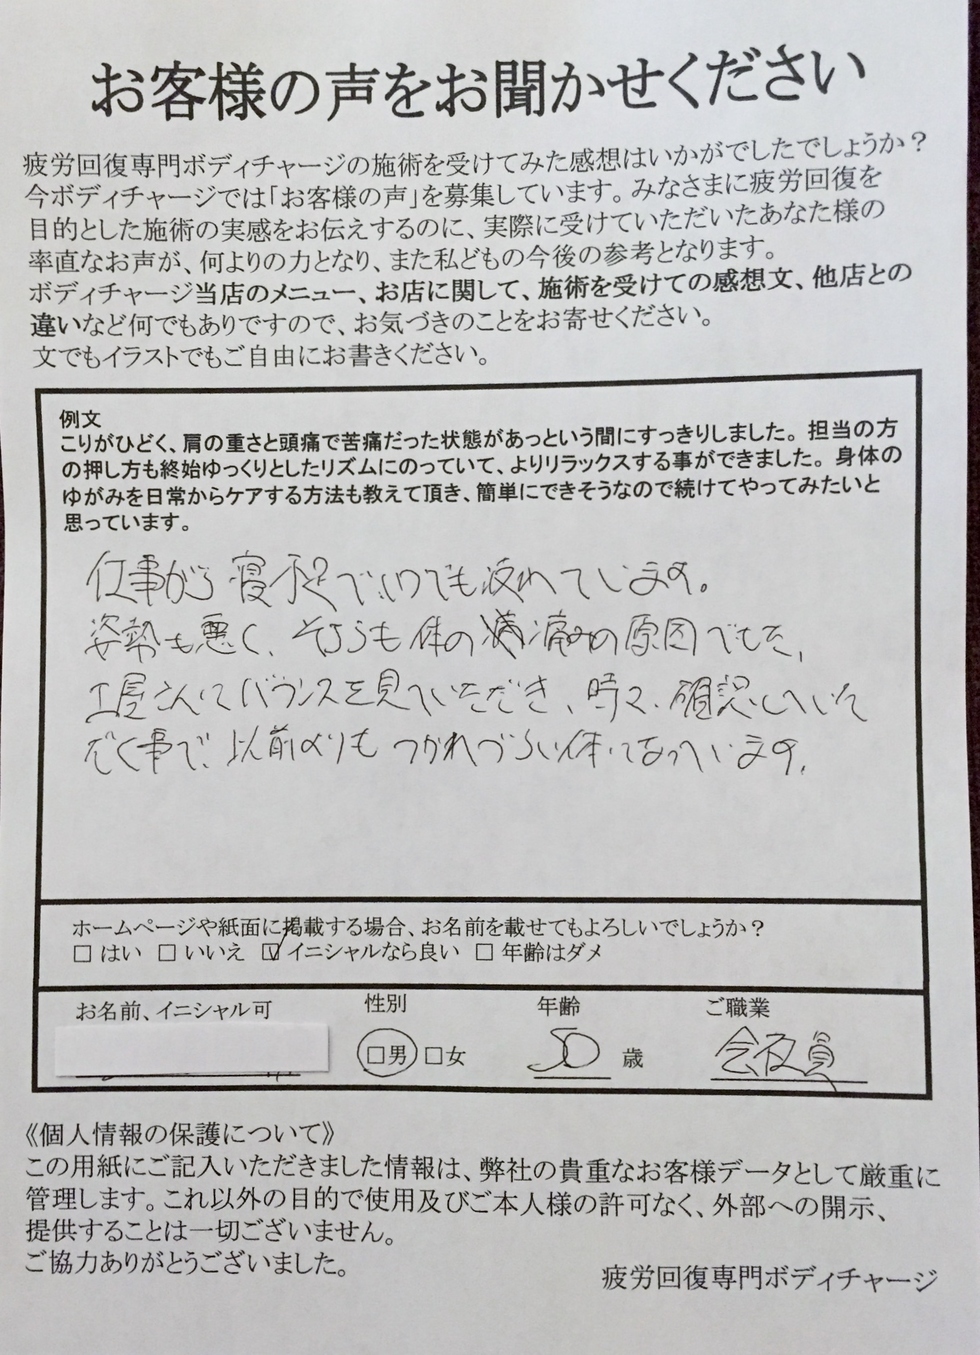 お客様の声をお聞かせください
疲労回復専門ボディチャージの施術を受けてみた感想はいかがでしたでしょうか？
今ボディチャージでは「お客様の声」を募集しています。みなさまに疲労回復を
目的とした施術の実感をお伝えするのに、実際に受けていただいたあなた様の
率直なお声が、何よりの力となり、また私どもの今後の参考となります。
ボディチャージ当店のメニュー、お店に関して、施術を受けての感想文、他店との
違いなど何でもありですので、お気づきのことをお寄せください。
文でもイラストでもご自由にお書きください。
例文
こりがひどく、肩の重さと頭痛で苦痛だった状態があっという間にすっきりしました。担当の方
の押し方も終始ゆっくりとしたリズムにのっていて、よりリラックスする事ができました。身体の
ゆがみを日常からケアする方法も教えて頂き、簡単にできそうなので続けてやってみたいと
思っています。
仕事がら寝不足でいつも疲れています。
姿勢も悪く、そちらも体の痛みの原因でした、
土屋さんにバランスを見ていただき、時々、確認していた
だく事で、以前よりもつかれづらい体になっています。
ホームページや紙面に掲載する場合、お名前を載せてもよろしいでしょうか？
□ はい □ いいえ ☑ イニシャルなら良い □ 年齢はダメ
お名前、イニシャル可 性別 年齢 ご職業
□男 □女 50 歳 会社員
《個人情報の保護について》
この用紙にご記入いただきました情報は、弊社の貴重なお客様データとして厳重に
管理します。これ以外の目的で使用及びご本人様の許可なく、外部への開示、
提供することは一切ございません。
ご協力ありがとうございました。
疲労回復専門ボディチャージ